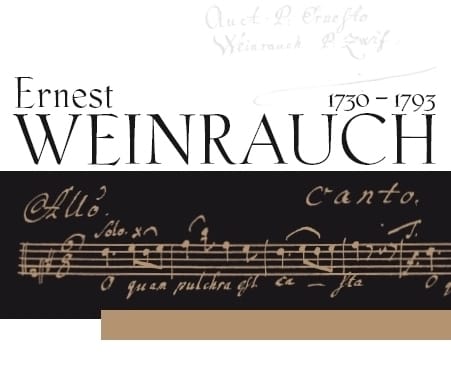 Auct. P. Ernesto
Weinrauch P. Zwif.
Ernest
1730 – 1793
WEINRAUCH
Allo.
Canto.
Solo.
O quam pulchra est ca – sta O